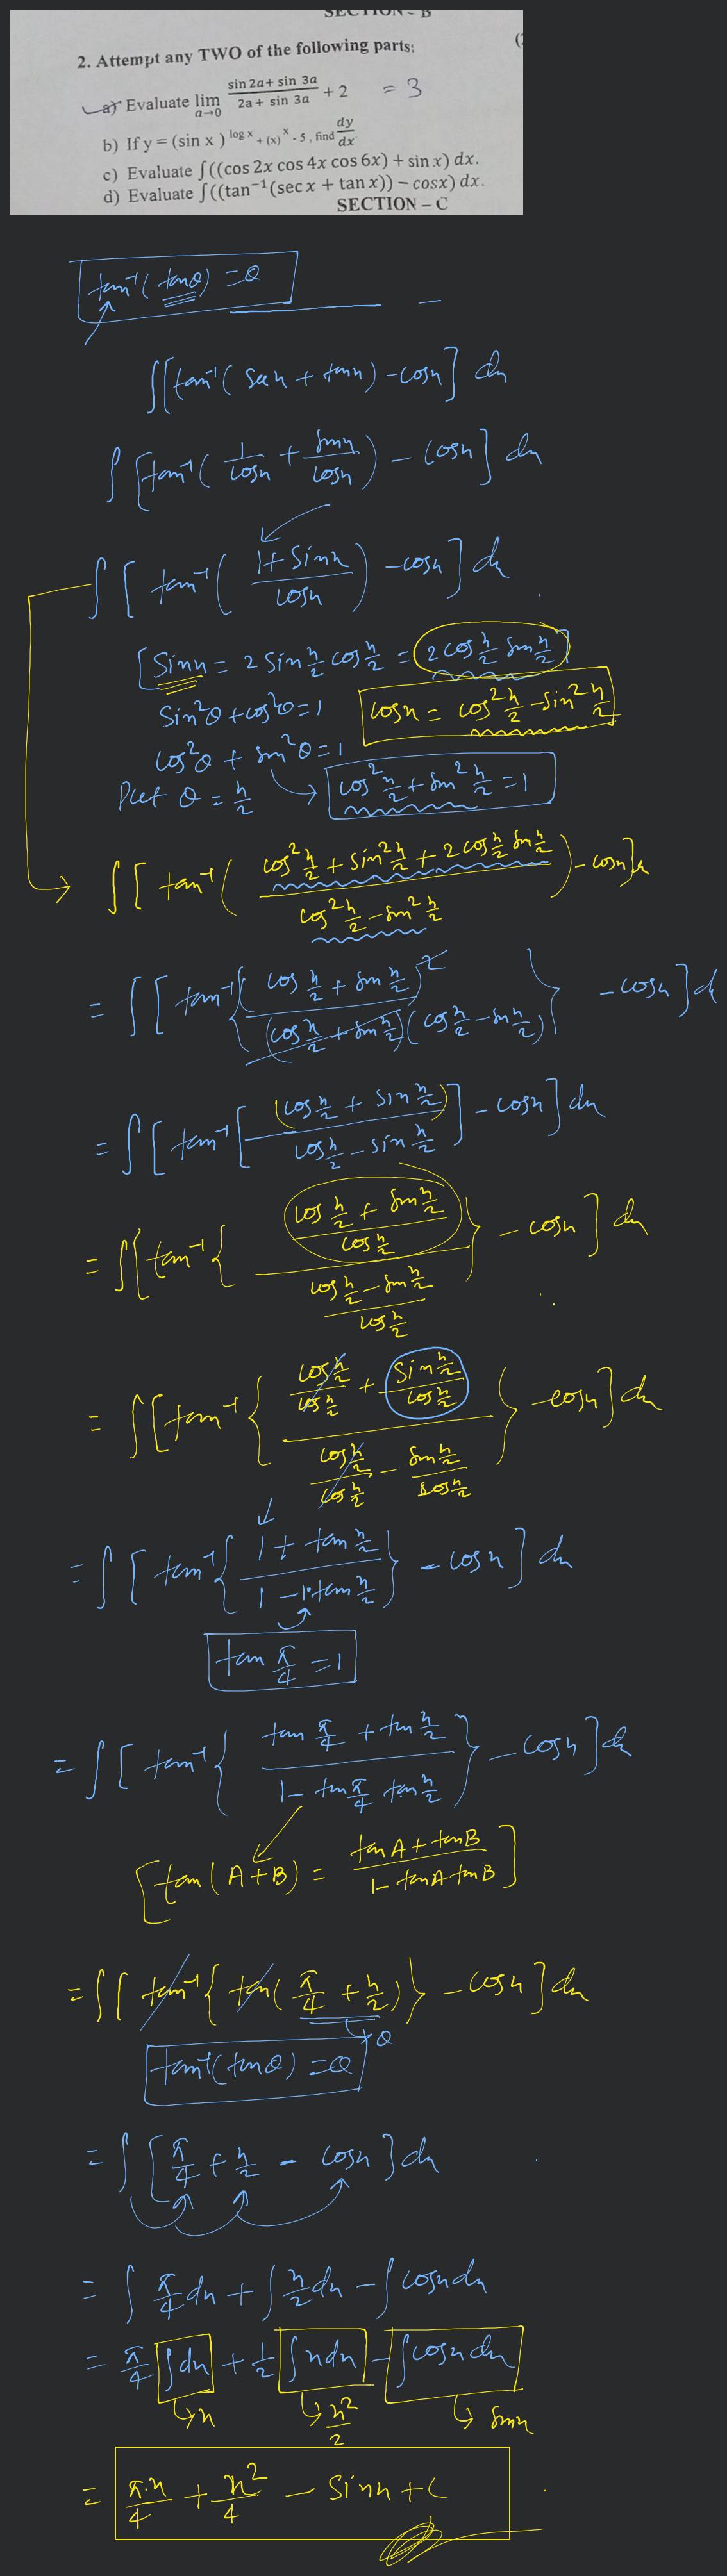 SECTION - B
2. Attempt any TWO of the following parts:
a) Evaluate lim a→0 (sin 2a + sin 3a)/(2a + sin 3a) + 2 = 3
b) If y = (sin x)^(log x) + (x)^x - 5, find dy/dx
c) Evaluate ∫((cos 2x cos 4x cos 6x) + sin x) dx.
d) Evaluate ∫((tan⁻¹(sec x + tan x)) − cosx) dx.
SECTION – C
tan⁻¹(tanθ) = θ
∫[tan⁻¹(secx + tanx) - cosx] dx
∫[tan⁻¹(1/cosx + sinx/cosx) - cosx] dx
∫[tan⁻¹((1 + sinx)/cosx) - cosx] dx
[Sinx = 2 Sin x/2 cos x/2 = 2 cos x/2 sin x/2]
Sin²θ + cos²θ = 1 cosx = cos² x/2 - sin² x/2
cos²θ + sin²θ = 1
Put θ = x/2 → cos² x/2 + sin² x/2 = 1
∫[tan⁻¹((cos² x/2 + sin² x/2 + 2 cos x/2 sin x/2)/(cos² x/2 - sin² x/2)) - cosx] dx
= ∫[tan⁻¹{(cos x/2 + sin x/2)²/((cos x/2 + sin x/2)(cos x/2 - sin x/2))} - cosx] d
= ∫[tan⁻¹[(cos x/2 + sin x/2)/(cos x/2 - sin x/2)] - cosx] dx
= ∫[tan⁻¹{((cos x/2 + sin x/2)/cos x/2)/((cos x/2 - sin x/2)/cos x/2)} - cosx] dx
= ∫[tan⁻¹{(cos x/2 / cos x/2 + sin x/2 / cos x/2)/(cos x/2 / cos x/2 - sin x/2 / cos x/2)} - cosx] dx
= ∫[tan⁻¹{(1 + tan x/2)/(1 - 1·tan x/2)} - cosx] dx
tan π/4 = 1
= ∫[tan⁻¹{(tan π/4 + tan x/2)/(1 - tan π/4 tan x/2)} - cosx] dx
[tan(A+B) = (tanA + tanB)/(1 - tanA tanB)]
= ∫[tan⁻¹{tan(π/4 + x/2)} - cosx] dx
θ
tan⁻¹(tanθ) = θ
= ∫[π/4 + x/2 - cosx] dx
= ∫ π/4 dx + ∫ x/2 dx - ∫ cosx dx
= π/4 ∫dx + 1/2 ∫xdx - ∫cosx dx
→ x → x²/2 → sinx
= π·x/4 + x²/4 - Sinx + C